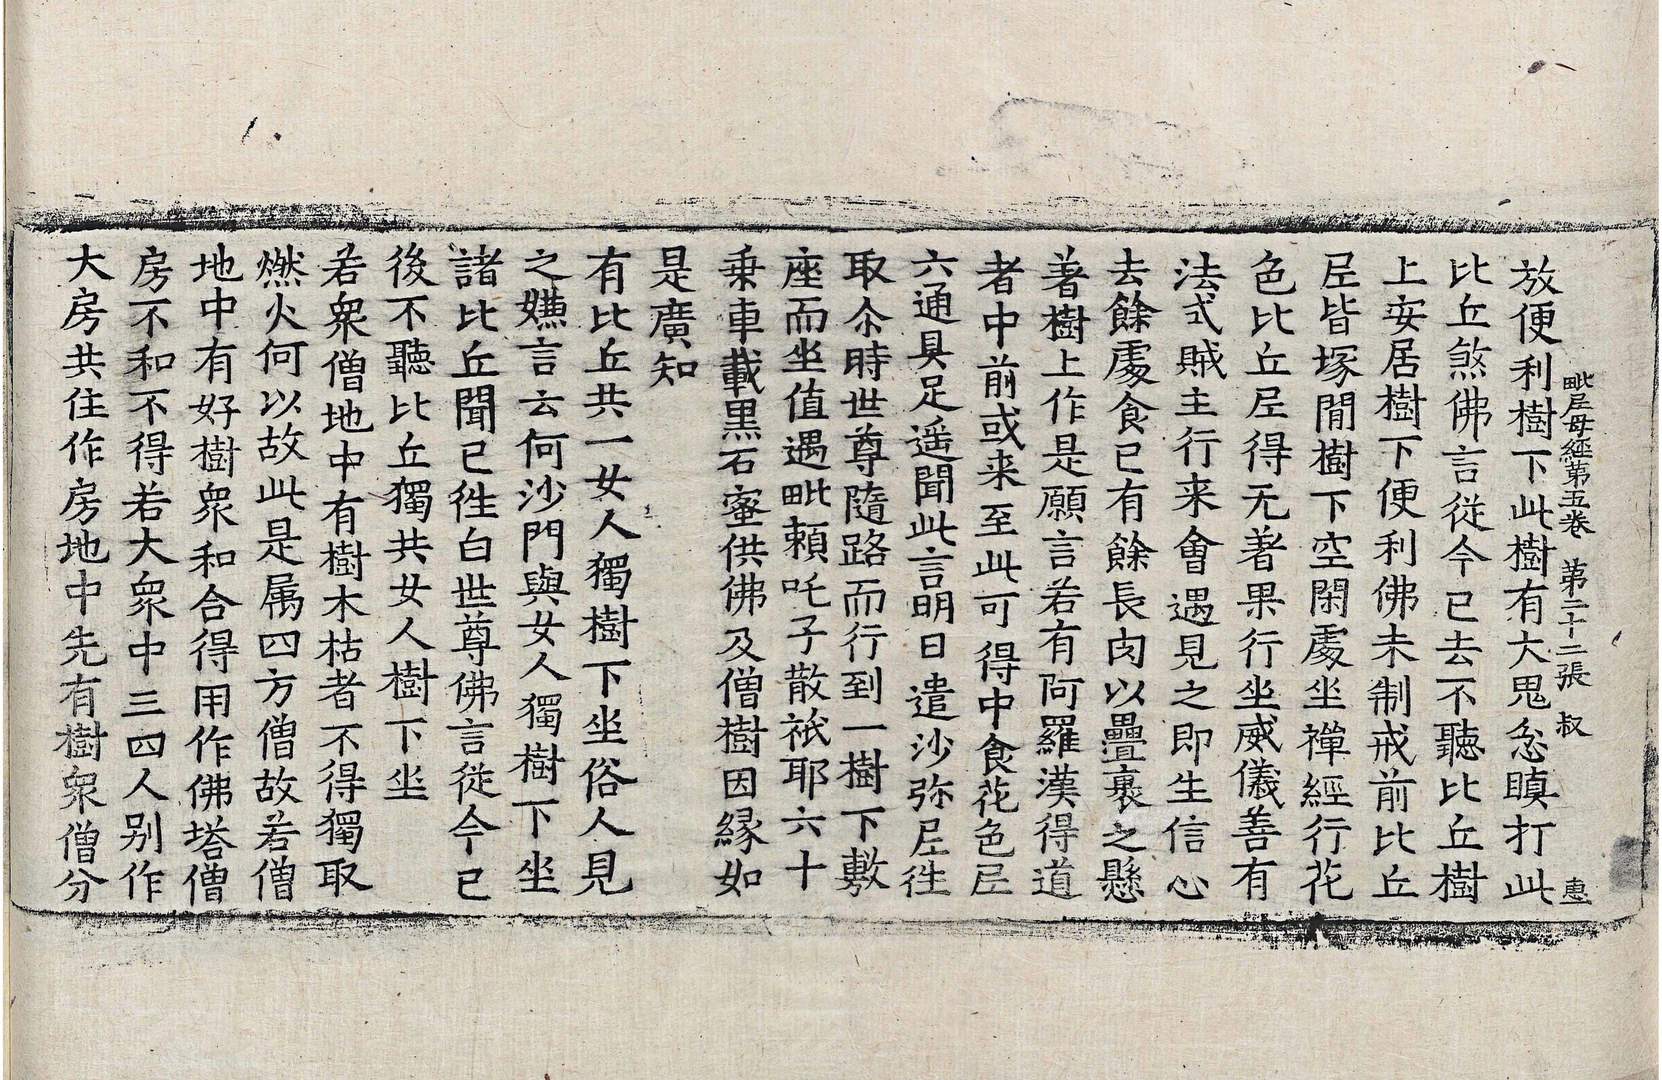 毗尼母經第五卷 第二十二張 叔 惠
放便利樹下此樹有大鬼忿瞋打此
比丘煞佛言從今已去不聽比丘樹
上安居樹下便利佛未制戒前比丘
尼皆塚閒樹下空閑處坐禪經行花
色比丘尼得无著果行坐威儀善有
法式賊主行来會遇見之即生信心
去餘處食已有餘長肉以疊裹之懸
著樹上作是願言若有阿羅漢得道
者中前或来至此可得中食花色尼
六通具足遥聞此言明日遣沙弥尼徃
取尒時世尊隨路而行到一樹下敷
座而坐值遇毗頼吒子散衹耶六十
乗車載黒石蜜供佛及僧樹因縁如
是廣知
有比丘共一女人獨樹下坐俗人見
之嫌言云何沙門與女人獨樹下坐
諸比丘聞已徃白世尊佛言從今已
後不聽比丘獨共女人樹下坐
若衆僧地中有樹木枯者不得獨取
燃火何以故此是属四方僧故若僧
地中有好樹衆和合得用作佛塔僧
房不和不得若大衆中三四人别作
大房共住作房地中先有樹衆僧分